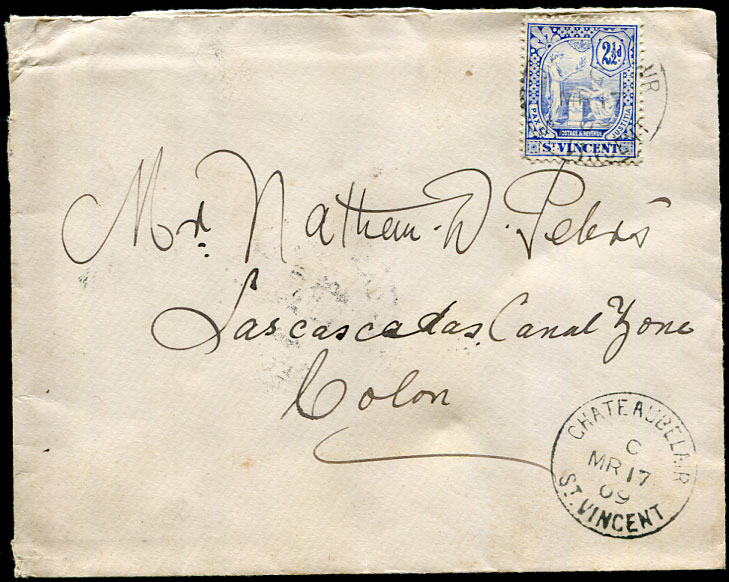 2½d
PAX
JUSTITIA
POSTAGE & REVENUE
ST VINCENT
Mr. Nathan. D. Peters
Lascascadas, Canal Zone
Colon
CHATEAUBELAIR
C
MR 17
09
ST. VINCENT